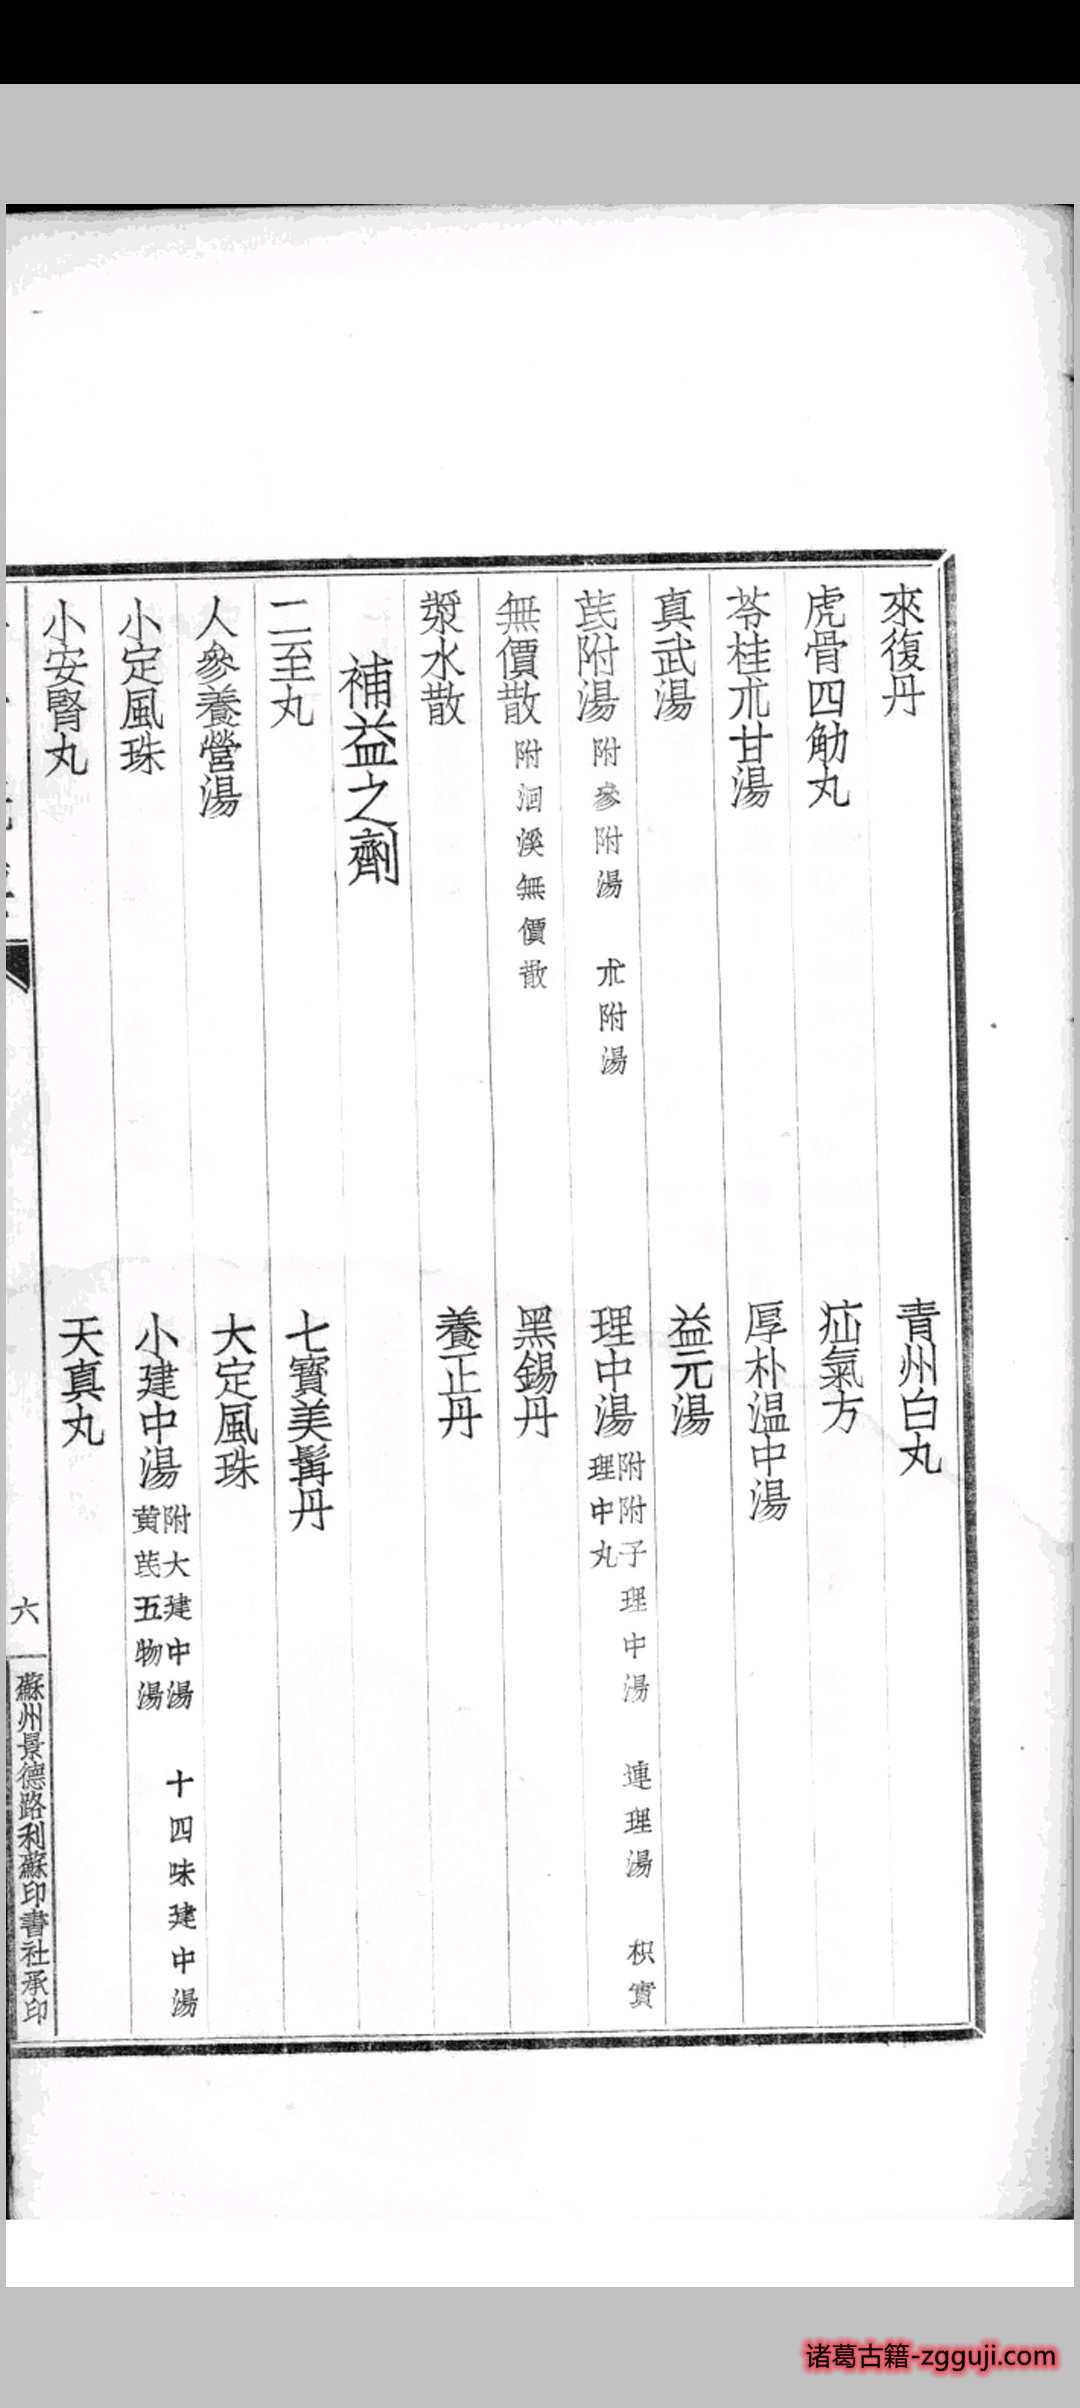 來復丹
青州白丸
虎骨四觔丸
疝氣方
苓桂朮甘湯
厚朴温中湯
真武湯
益元湯
茋附湯 附參附湯 朮附湯
理中湯 附附子理中湯 連理湯 枳實
理中丸
無價散 附洄溪無價散
黑錫丹
漿水散
養正丹
補益之劑
二至丸
七寶美髯丹
人參養營湯
大定風珠
小定風珠
小建中湯 附大建中湯 十四味建中湯
黄茋五物湯
小安腎丸
天真丸
六
蘇州景德路利蘇印書社承印
诸葛古籍-zgguji.com